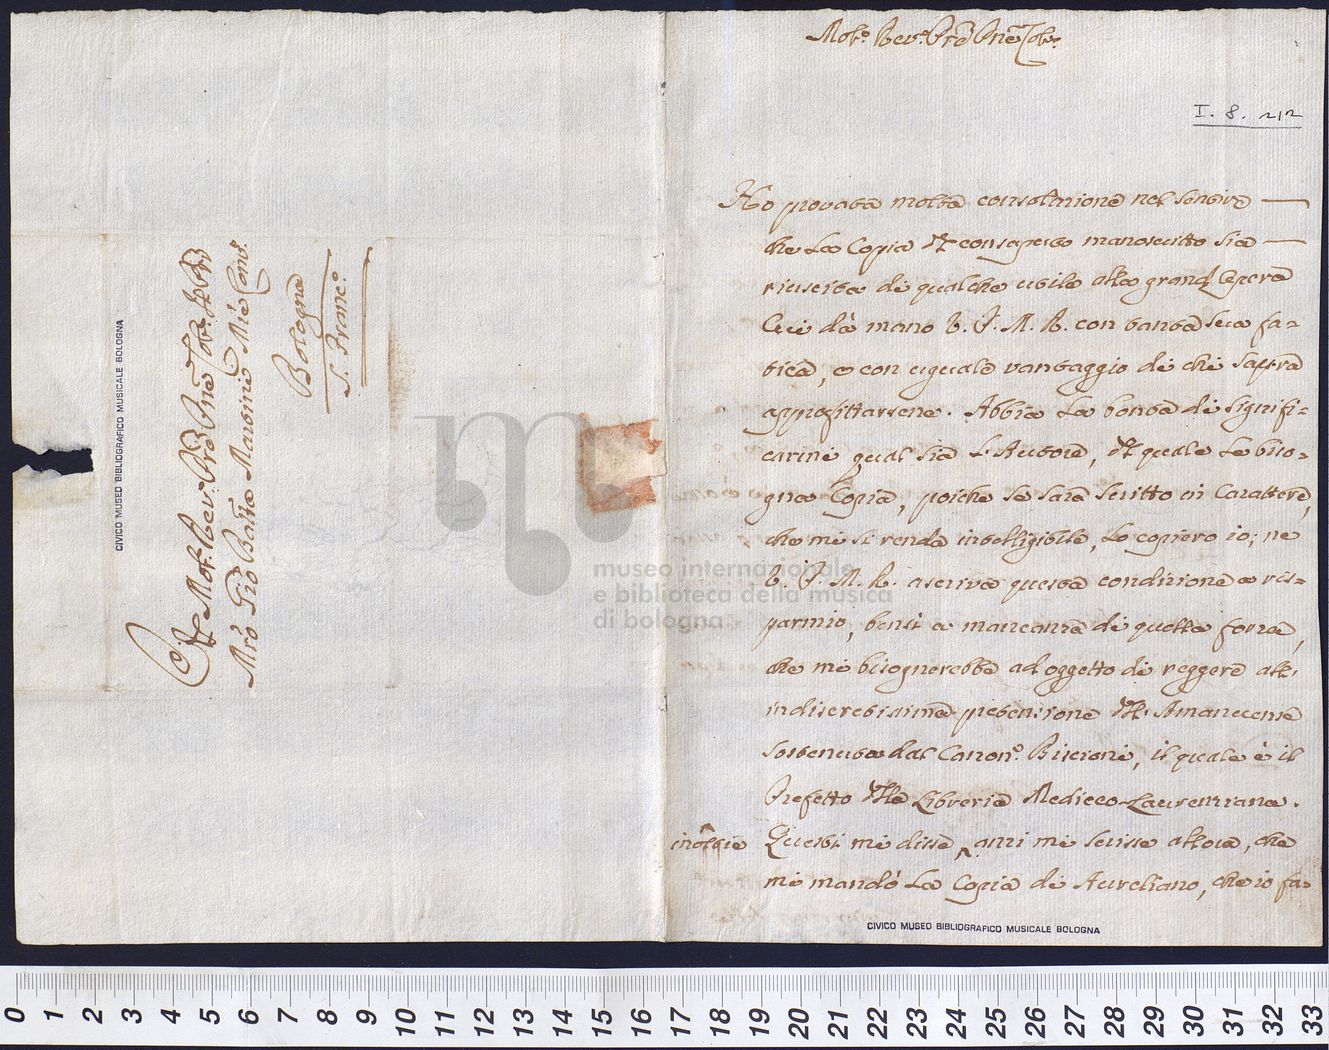 Molt.º Rev.º Prē Pnē Col.º
I. 8. 212
Ho provata molta consolazione nel sentire
che la Copia del consaputo manoscritto sia
riuscita di qualche utile alla grand'Opera
a cui dà mano V. P. M. R. con tanta sua fa-
tica, e con uguale vantaggio di chi saprà
approfittarsene. Abbia la bontà di signifi-
carmi qual sia l'Autore, del quale le biso-
gna Copia, poiche se sarà scritto in Carattere,
che mi si renda intelligibile, lo copierò io; ne
V. P. M. R. ascriva questa condizione a ris-
parmio, bensì a mancanza di quella forza,
che mi bisognerebbe ad oggetto di reggere all'
indiscretissima pretenzione dell'Amanuense
sostenuto dal Canon.º Biscioni, il quale è il
Prefetto della Libreria Mediceo-Laurenziana.
inoltre Questi mi disse, anzi mi scrisse allora, che
mi mandò la Copia di Aureliano, che io fa-
CIVICO MUSEO BIBLIOGRAFICO MUSICALE BOLOGNA
Al Molt. Rev. Prē Pnē Col.
Mrō Gio Batta Martini Miñ Conv.
Bologna
S. Franc.º
CIVICO MUSEO BIBLIOGRAFICO MUSICALE BOLOGNA
museo internazionale
e biblioteca della musica
di bologna
0 1 2 3 4 5 6 7 8 9 10 11 12 13 14 15 16 17 18 19 20 21 22 23 24 25 26 27 28 29 30 31 32 33